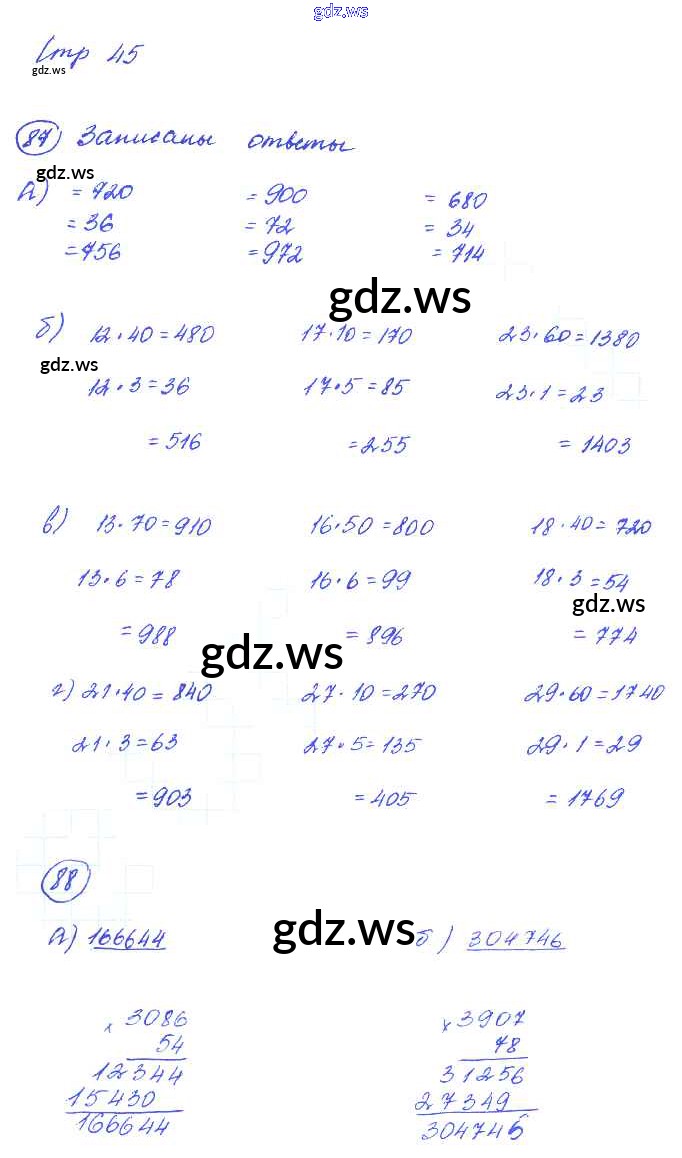 gdz.ws
Стр 45
gdz.ws
87 Записаны ответы
gdz.ws
а) = 720 = 900 = 680
= 36 = 72 = 34
= 756 = 972 = 714
gdz.ws
б) 12·40=480 17·10=170 23·60=1380
gdz.ws
12·3=36 17·5=85 23·1=23
=516 =255 = 1403
в) 13·70=910 16·50=800 18·40=720
13·6=78 16·6=99 18·3=54
gdz.ws
=988 = 896 = 774
gdz.ws
г) 21·40=840 27·10=270 29·60=1740
21·3=63 27·5=135 29·1=29
=903 =405 = 1769
88
gdz.ws
а) 166644 б) 304746
× 3086 × 3907
54 78
12344 31256
15430 27349
166644 304746